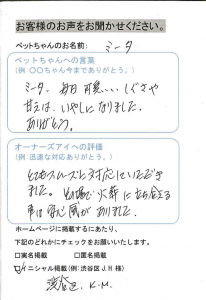 お客様のお声をお聞かせください。
ペットちゃんのお名前: ミータ
ペットちゃんへの言葉
(例:〇〇ちゃん今までありがとう。)
ミータ、毎日可愛いしぐさや
甘えは、いやしになりました。
ありがとう。
オーナーズアイへの評価
(例:迅速な対応ありがとう。)
とてもスムーズに対応していただき
ました。その場で火葬に立ち会える
事は安心感がありました。
ホームページに掲載するにあたり、
下記のどれかにチェックをお願いします。
□実名掲載 □匿名掲載
☑イニシャル掲載(例:渋谷区J.H様)
渋谷区、K.M